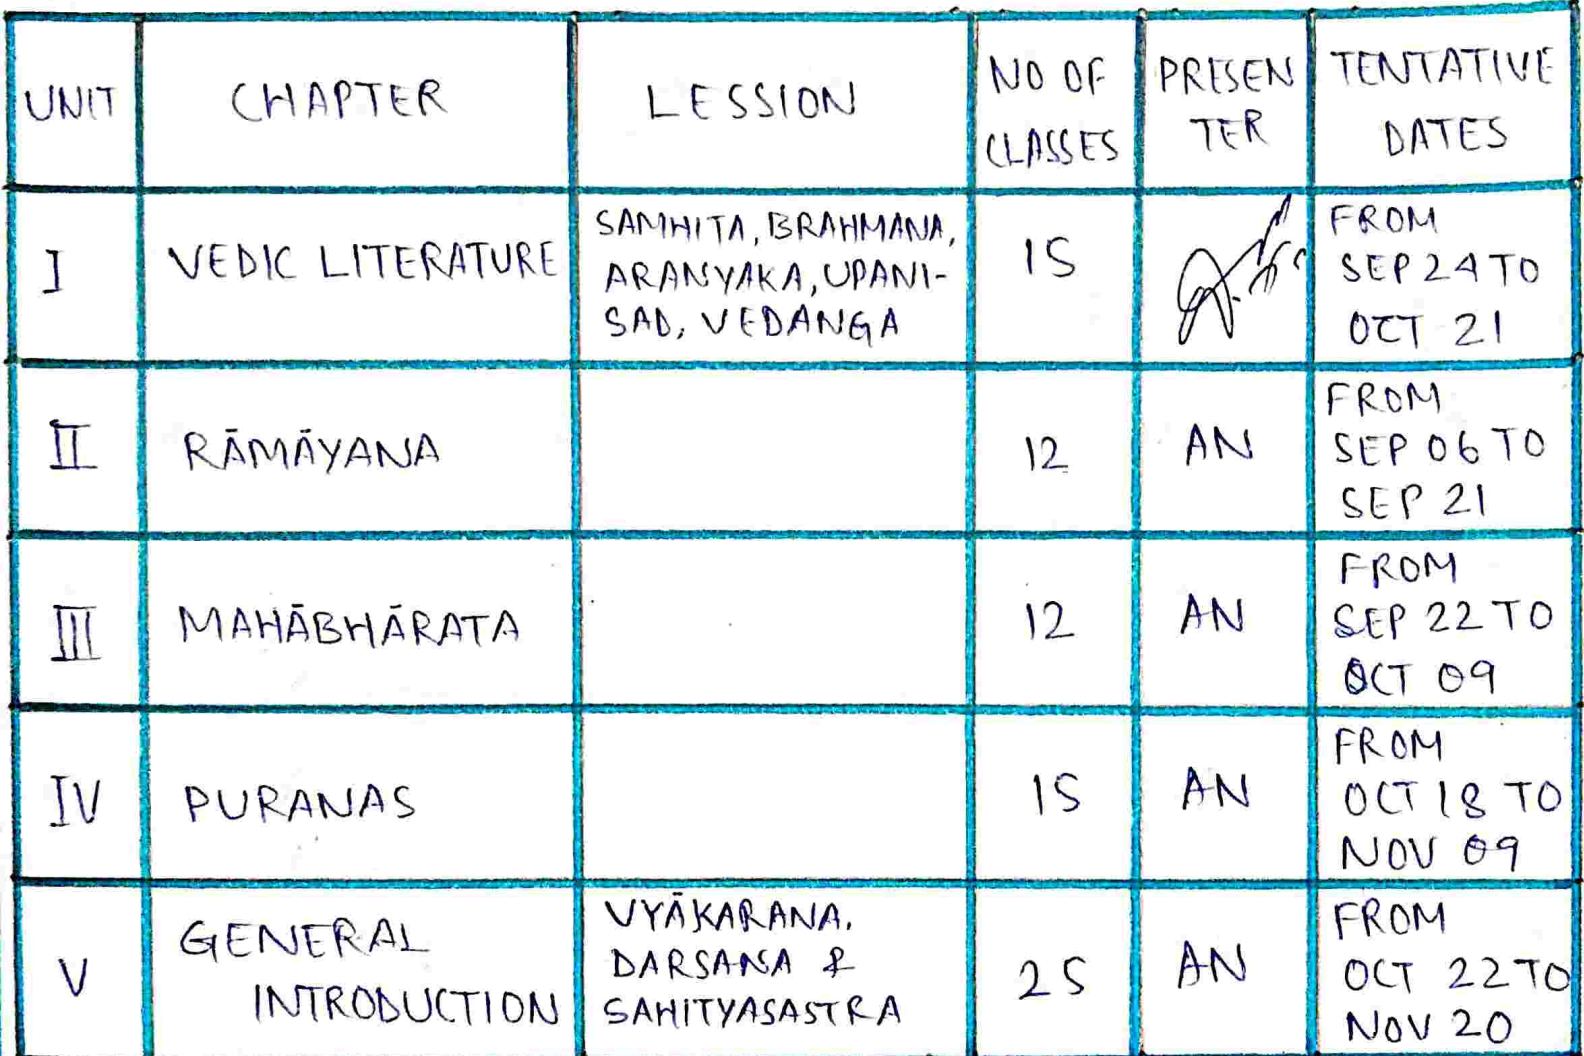 UNIT CHAPTER LESSION NO OF CLASSES PRESEN TER TENTATIVE DATES
I VEDIC LITERATURE
SAMHITA, BRAHMANA,
ARANYAKA, UPANI-
SAD, VEDANGA
15
FROM
SEP 24 TO
OCT 21
II RĀMĀYANA 12 AN
FROM
SEP 06 TO
SEP 21
III MAHĀBHĀRATA 12 AN
FROM
SEP 22 TO
OCT 09
IV PURANAS 15 AN
FROM
OCT 18 TO
NOV 09
V
GENERAL
INTRODUCTION
VYĀKARANA.
DARSANA &
SAHITYASASTRA
25
AN
FROM
OCT 22 TO
NOV 20